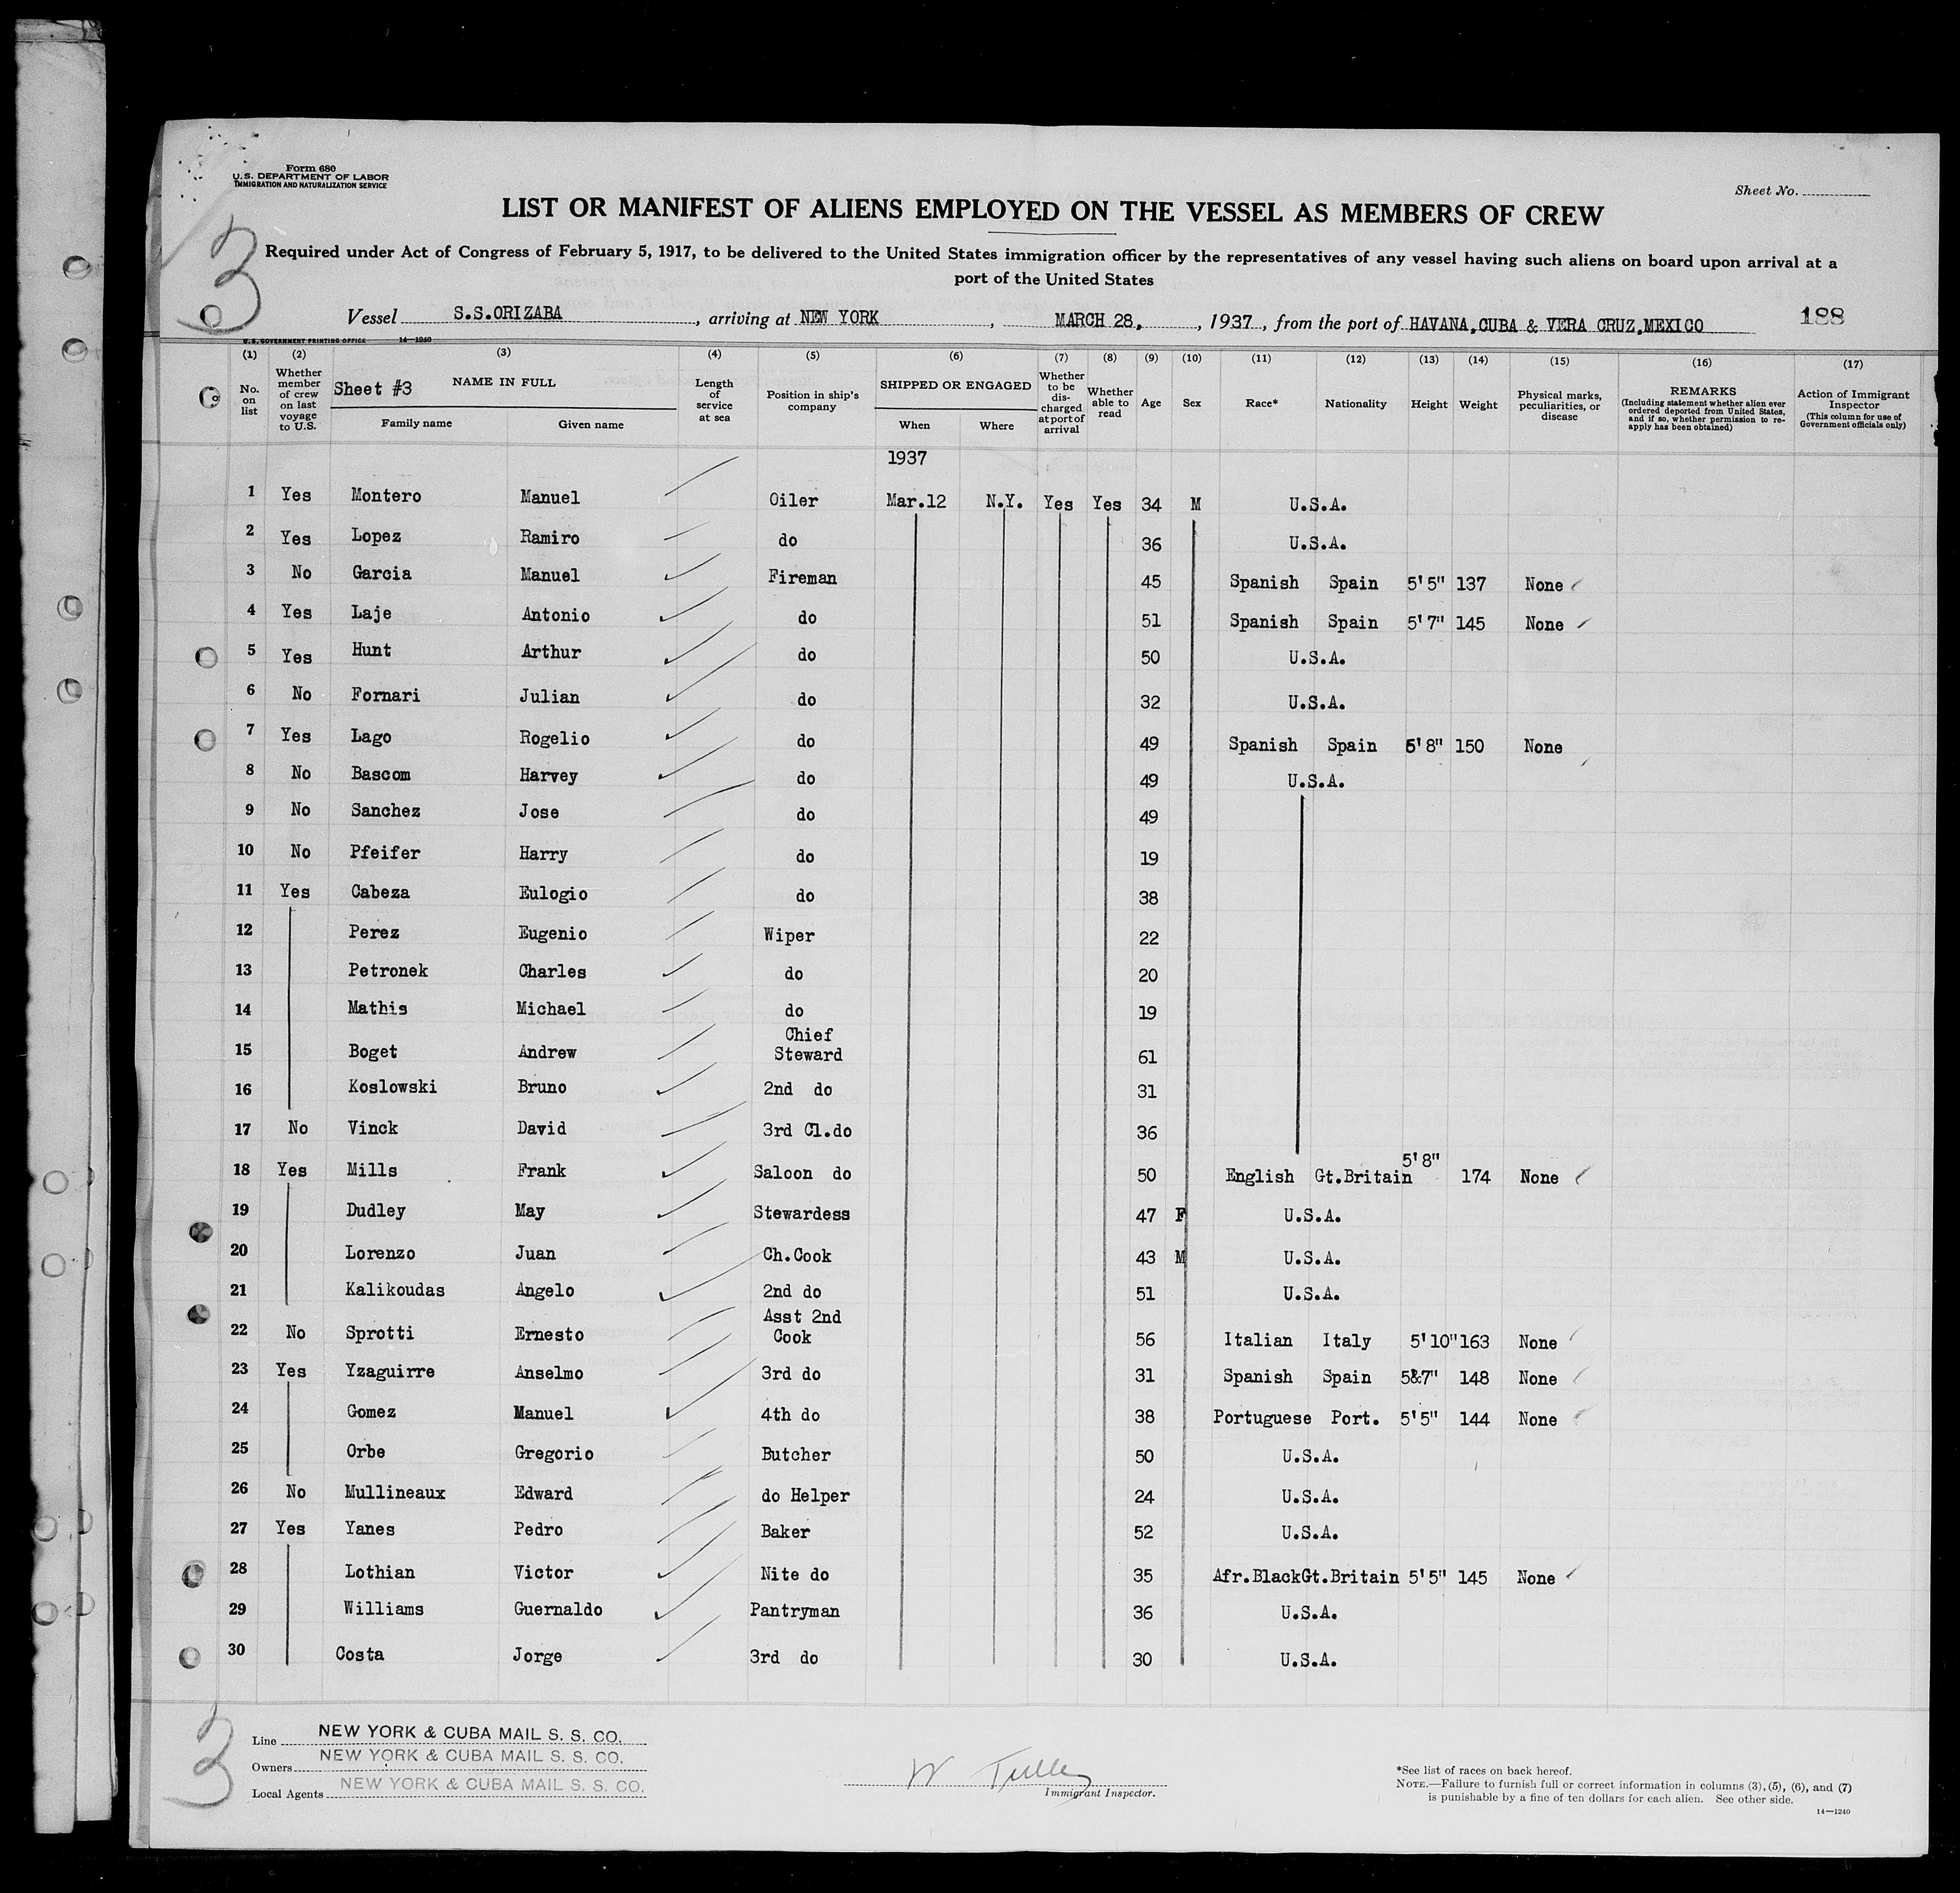 Form 680
U.S. DEPARTMENT OF LABOR
IMMIGRATION AND NATURALIZATION SERVICE
Sheet No.
LIST OR MANIFEST OF ALIENS EMPLOYED ON THE VESSEL AS MEMBERS OF CREW
3
Required under Act of Congress of February 5, 1917, to be delivered to the United States immigration officer by the representatives of any vessel having such aliens on board upon arrival at a
port of the United States
Vessel S.S.ORIZABA, arriving at NEW YORK, MARCH 28, , 1937, from the port of HAVANA,CUBA & VERA CRUZ,MEXICO 188
U.S. GOVERNMENT PRINTING OFFICE 14—1240
(1) (2) (3) (4) (5) (6) (7) (8) (9) (10) (11) (12) (13) (14) (15) (16) (17)
No. on list
Whether member of crew on last voyage to U.S.
Sheet #3 NAME IN FULL
Family name Given name
Length of service at sea
Position in ship's company
SHIPPED OR ENGAGED
When Where
Whether to be discharged at port of arrival
Whether able to read
Age
Sex
Race*
Nationality
Height
Weight
Physical marks, peculiarities, or disease
REMARKS
(Including statement whether alien ever ordered deported from United States, and if so, whether permission to re-apply has been obtained)
Action of Immigrant Inspector
(This column for use of Government officials only)
1937
1 Yes Montero Manuel Oiler Mar.12 N.Y. Yes Yes 34 M U.S.A.
2 Yes Lopez Ramiro do 36 U.S.A.
3 No Garcia Manuel Fireman 45 Spanish Spain 5'5" 137 None
4 Yes Laje Antonio do 51 Spanish Spain 5'7" 145 None
5 Yes Hunt Arthur do 50 U.S.A.
6 No Fornari Julian do 32 U.S.A.
7 Yes Lago Rogelio do 49 Spanish Spain 5'8" 150 None
8 No Bascom Harvey do 49 U.S.A.
9 No Sanchez Jose do 49
10 No Pfeifer Harry do 19
11 Yes Cabeza Eulogio do 38
12 Perez Eugenio Wiper 22
13 Petronek Charles do 20
14 Mathis Michael do 19
15 Boget Andrew Chief Steward 61
16 Koslowski Bruno 2nd do 31
17 No Vinck David 3rd Cl.do 36
18 Yes Mills Frank Saloon do 50 English Gt.Britain 5'8" 174 None
19 Dudley May Stewardess 47 F U.S.A.
20 Lorenzo Juan Ch.Cook 43 M U.S.A.
21 Kalikoudas Angelo 2nd do 51 U.S.A.
22 No Sprotti Ernesto Asst 2nd Cook 56 Italian Italy 5'10" 163 None
23 Yes Yzaguirre Anselmo 3rd do 31 Spanish Spain 5&7" 148 None
24 Gomez Manuel 4th do 38 Portuguese Port. 5'5" 144 None
25 Orbe Gregorio Butcher 50 U.S.A.
26 No Mullineaux Edward do Helper 24 U.S.A.
27 Yes Yanes Pedro Baker 52 U.S.A.
28 Lothian Victor Nite do 35 Afr.Black Gt.Britain 5'5" 145 None
29 Williams Guernaldo Pantryman 36 U.S.A.
30 Costa Jorge 3rd do 30 U.S.A.
3
Line NEW YORK & CUBA MAIL S. S. CO.
Owners NEW YORK & CUBA MAIL S. S. CO.
Local Agents NEW YORK & CUBA MAIL S. S. CO.
W Tulley
Immigrant Inspector.
*See list of races on back hereof.
NOTE.—Failure to furnish full or correct information in columns (3), (5), (6), and (7)
is punishable by a fine of ten dollars for each alien. See other side.
14—1240